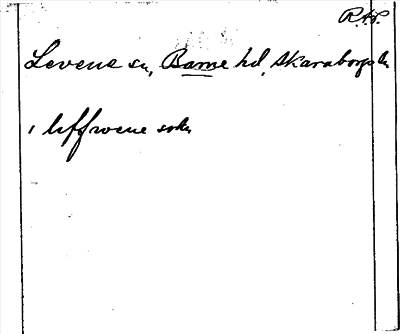 R.A.P.
Levene sn, Barne hd, Skaraborgs ln
i leffwene sokn